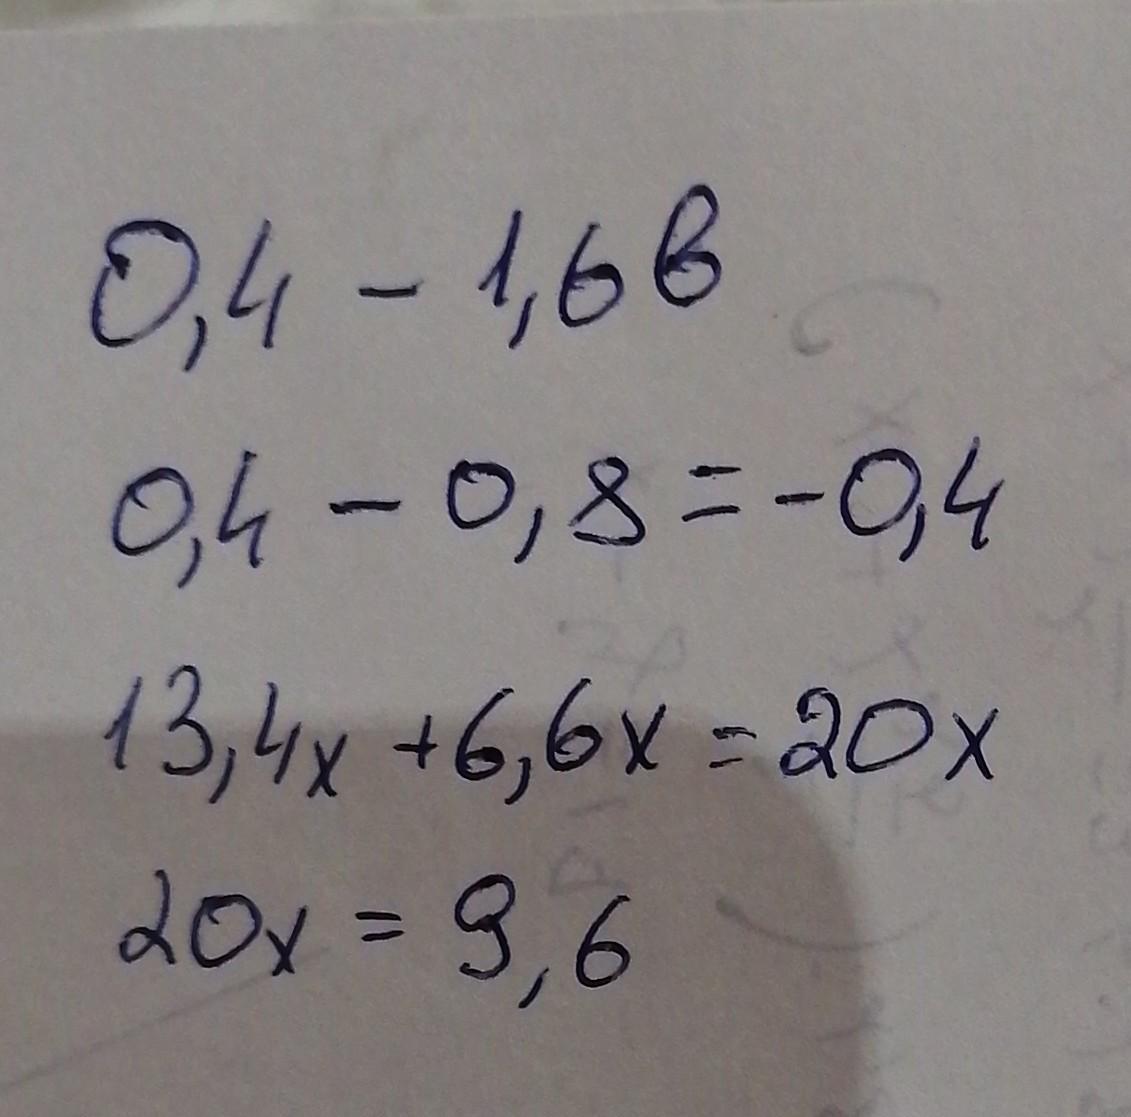 0,4 - 1,6в
0,4 - 0,8 = -0,4
13,4x + 6,6x = 20x
20x = 9,6